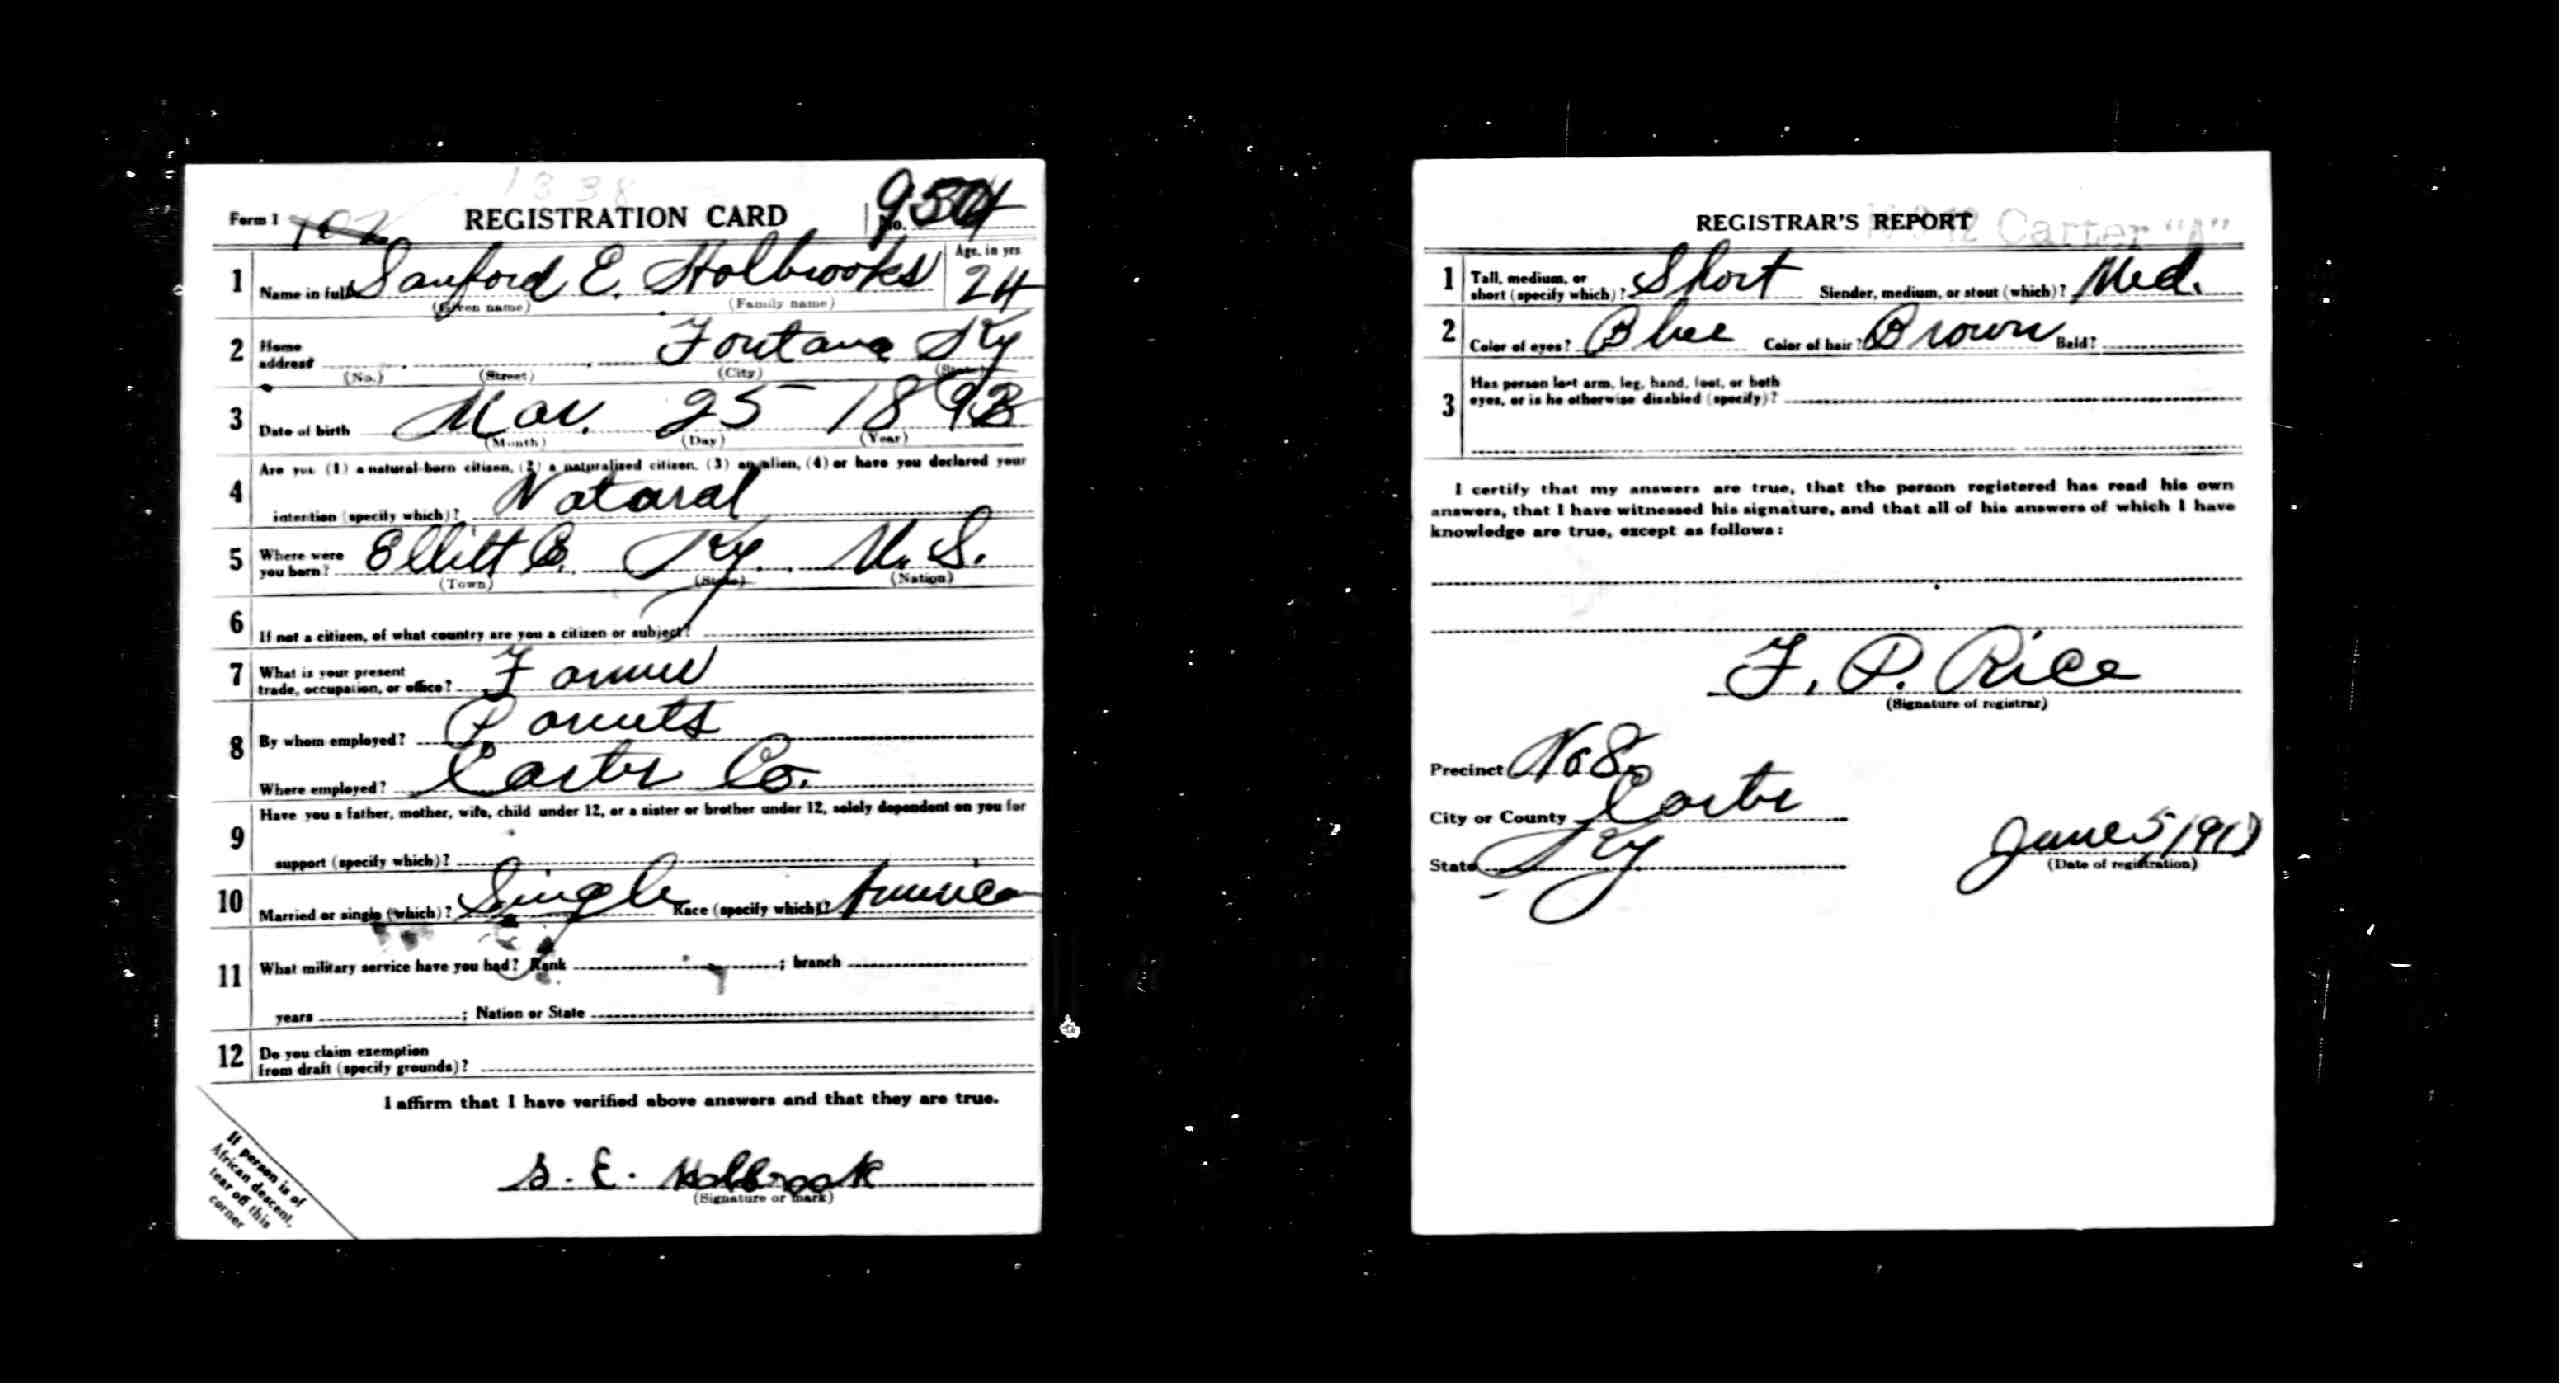 Form 1 102 REGISTRATION CARD No.
1338
1 Name in full Sanford E. Holbrooks Age, in yrs 24
(Given name) (Family name)
2 Home address Fontana Ky
(No.) (Street) (City) (State)
3 Date of birth Mar. 25 1893
(Month) (Day) (Year)
4 Are you (1) a natural-born citizen, (2) a naturalized citizen, (3) an alien, (4) or have you declared your
intention (specify which)? Natural
5 Where were you born? Ellitt Co. Ky. U. S.
(Town) (State) (Nation)
6 If not a citizen, of what country are you a citizen or subject?
7 What is your present
trade, occupation, or office? Farmer
8 By whom employed? Parents
Where employed? Carter Co.
9 Have you a father, mother, wife, child under 12, or a sister or brother under 12, solely dependent on you for
support (specify which)?
10 Married or single (which)? Single Race (specify which)? America
11 What military service have you had? Rank ; branch
years ; Nation or State
12 Do you claim exemption
from draft (specify grounds)?
I affirm that I have verified above answers and that they are true.
S. E. Holbrook
(Signature or mark)
If person is of
African descent,
tear off this
corner
REGISTRAR'S REPORT Carter "A"
1 Tall, medium, or
short (specify which)? Short Slender, medium, or stout (which)? Med.
2 Color of eyes? Blue Color of hair? Brown Bald?
3 Has person lost arm, leg, hand, foot, or both
eyes, or is he otherwise disabled (specify)?
I certify that my answers are true, that the person registered has read his own
answers, that I have witnessed his signature, and that all of his answers of which I have
knowledge are true, except as follows:
F. P. Rice
(Signature of registrar)
Precinct No 8
City or County Carter
State Ky
June 5 1917
(Date of registration)